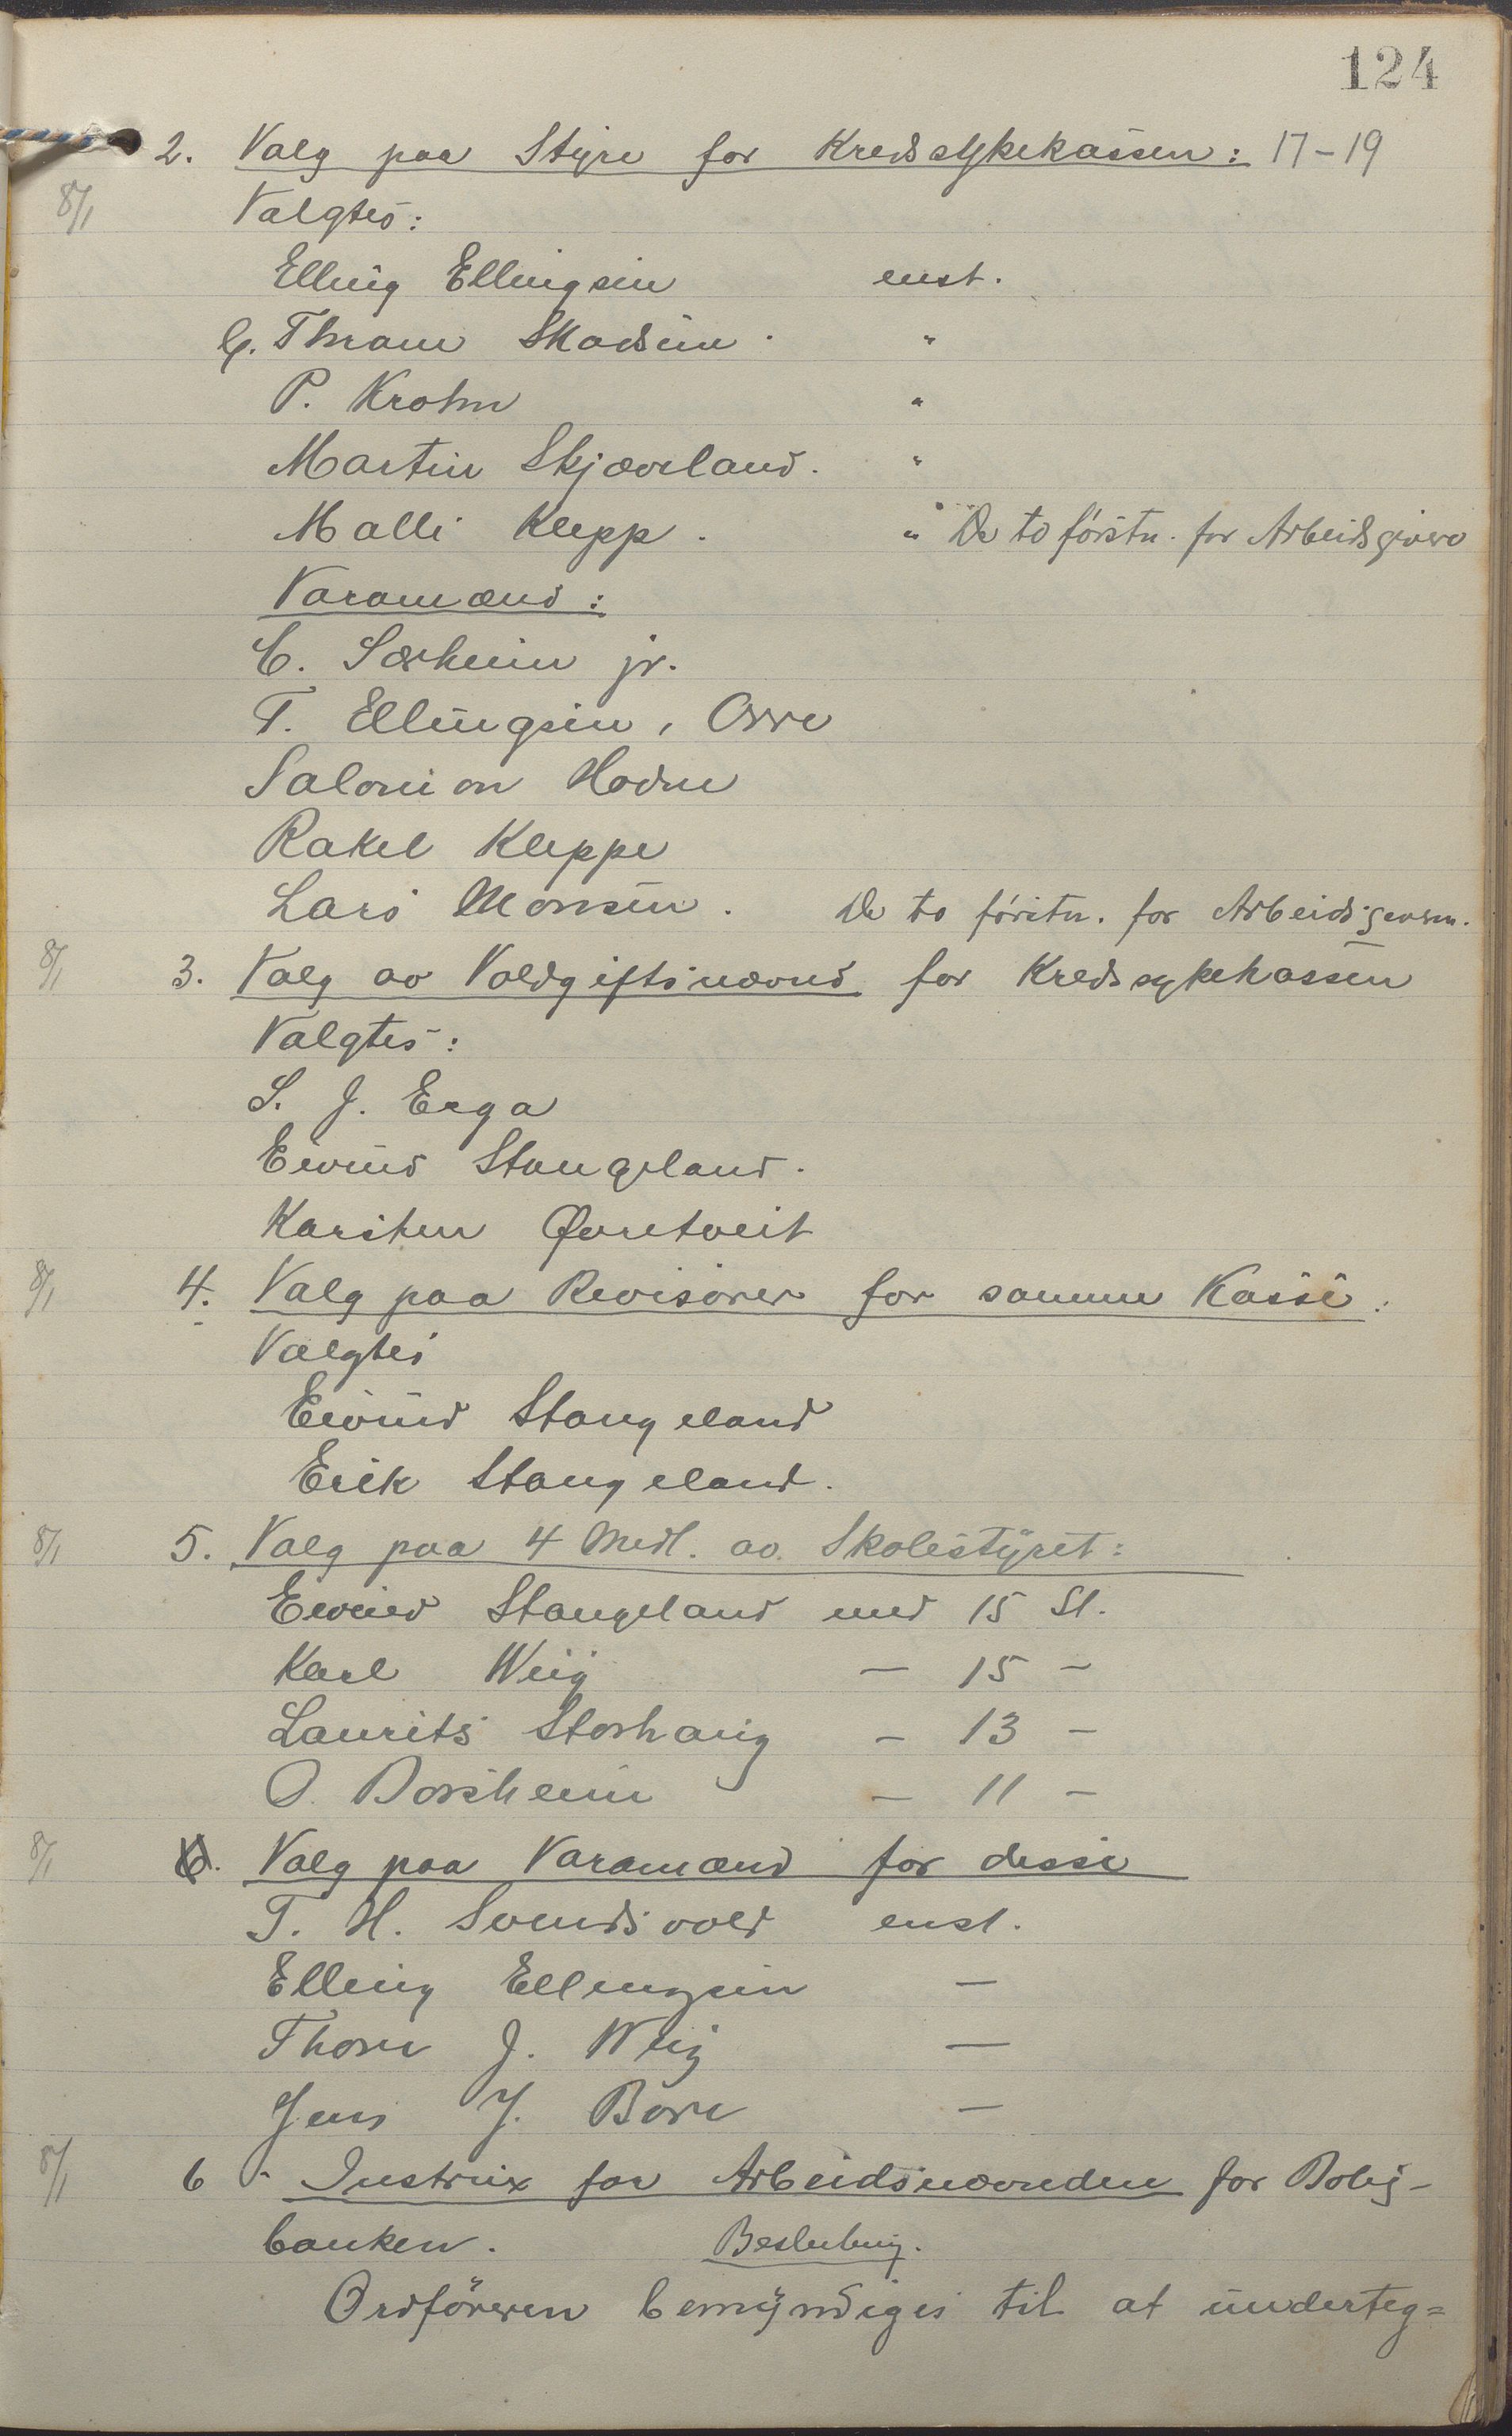 124
2. Valg paa Styre for Kredssykekassen: 17-19
8/1 Valgtes:
Elling Ellingsen enst.
G. Thrane Skadsem. "
P. Krohn "
Martin Skjæveland. "
Malli Klepp. " De to förstn. for Arbeidsgivere
Varamænd:
C. Særheim jr.
T. Ellingsen, Orre
Salomon Hodne
Rakel Kleppe
Lars Monsen. De to förstn. for Arbeidsgivern.
8/1 3. Valg av Voldgiftsnævnd for Kredssykekassen
Valgtes:
S. J. Erga
Eivind Stangeland.
Karsten Øvretveit
8/1 4. Valg paa Revisorer for samme Kasse:
Valgtes
Eivind Stangeland
Erik Stangeland.
8/1 5. Valg paa 4 Medl. av Skolestyret:
Eivind Stangeland med 15 St.
Karl Wiig — 15 —
Laurits Storhaug — 13 —
O. Borsheim — 11 —
8/1 6. Valg paa Varamænd for disse
T. H. Svendsvold enst.
Elling Ellingsen —
Thore J. Wiig —
Jens J. Bore —
8/1 6. Instrux for Arbeidsnævnden for Bolig-
banken. Beslutning.
Ordföreren bemyndiges til at underteg=